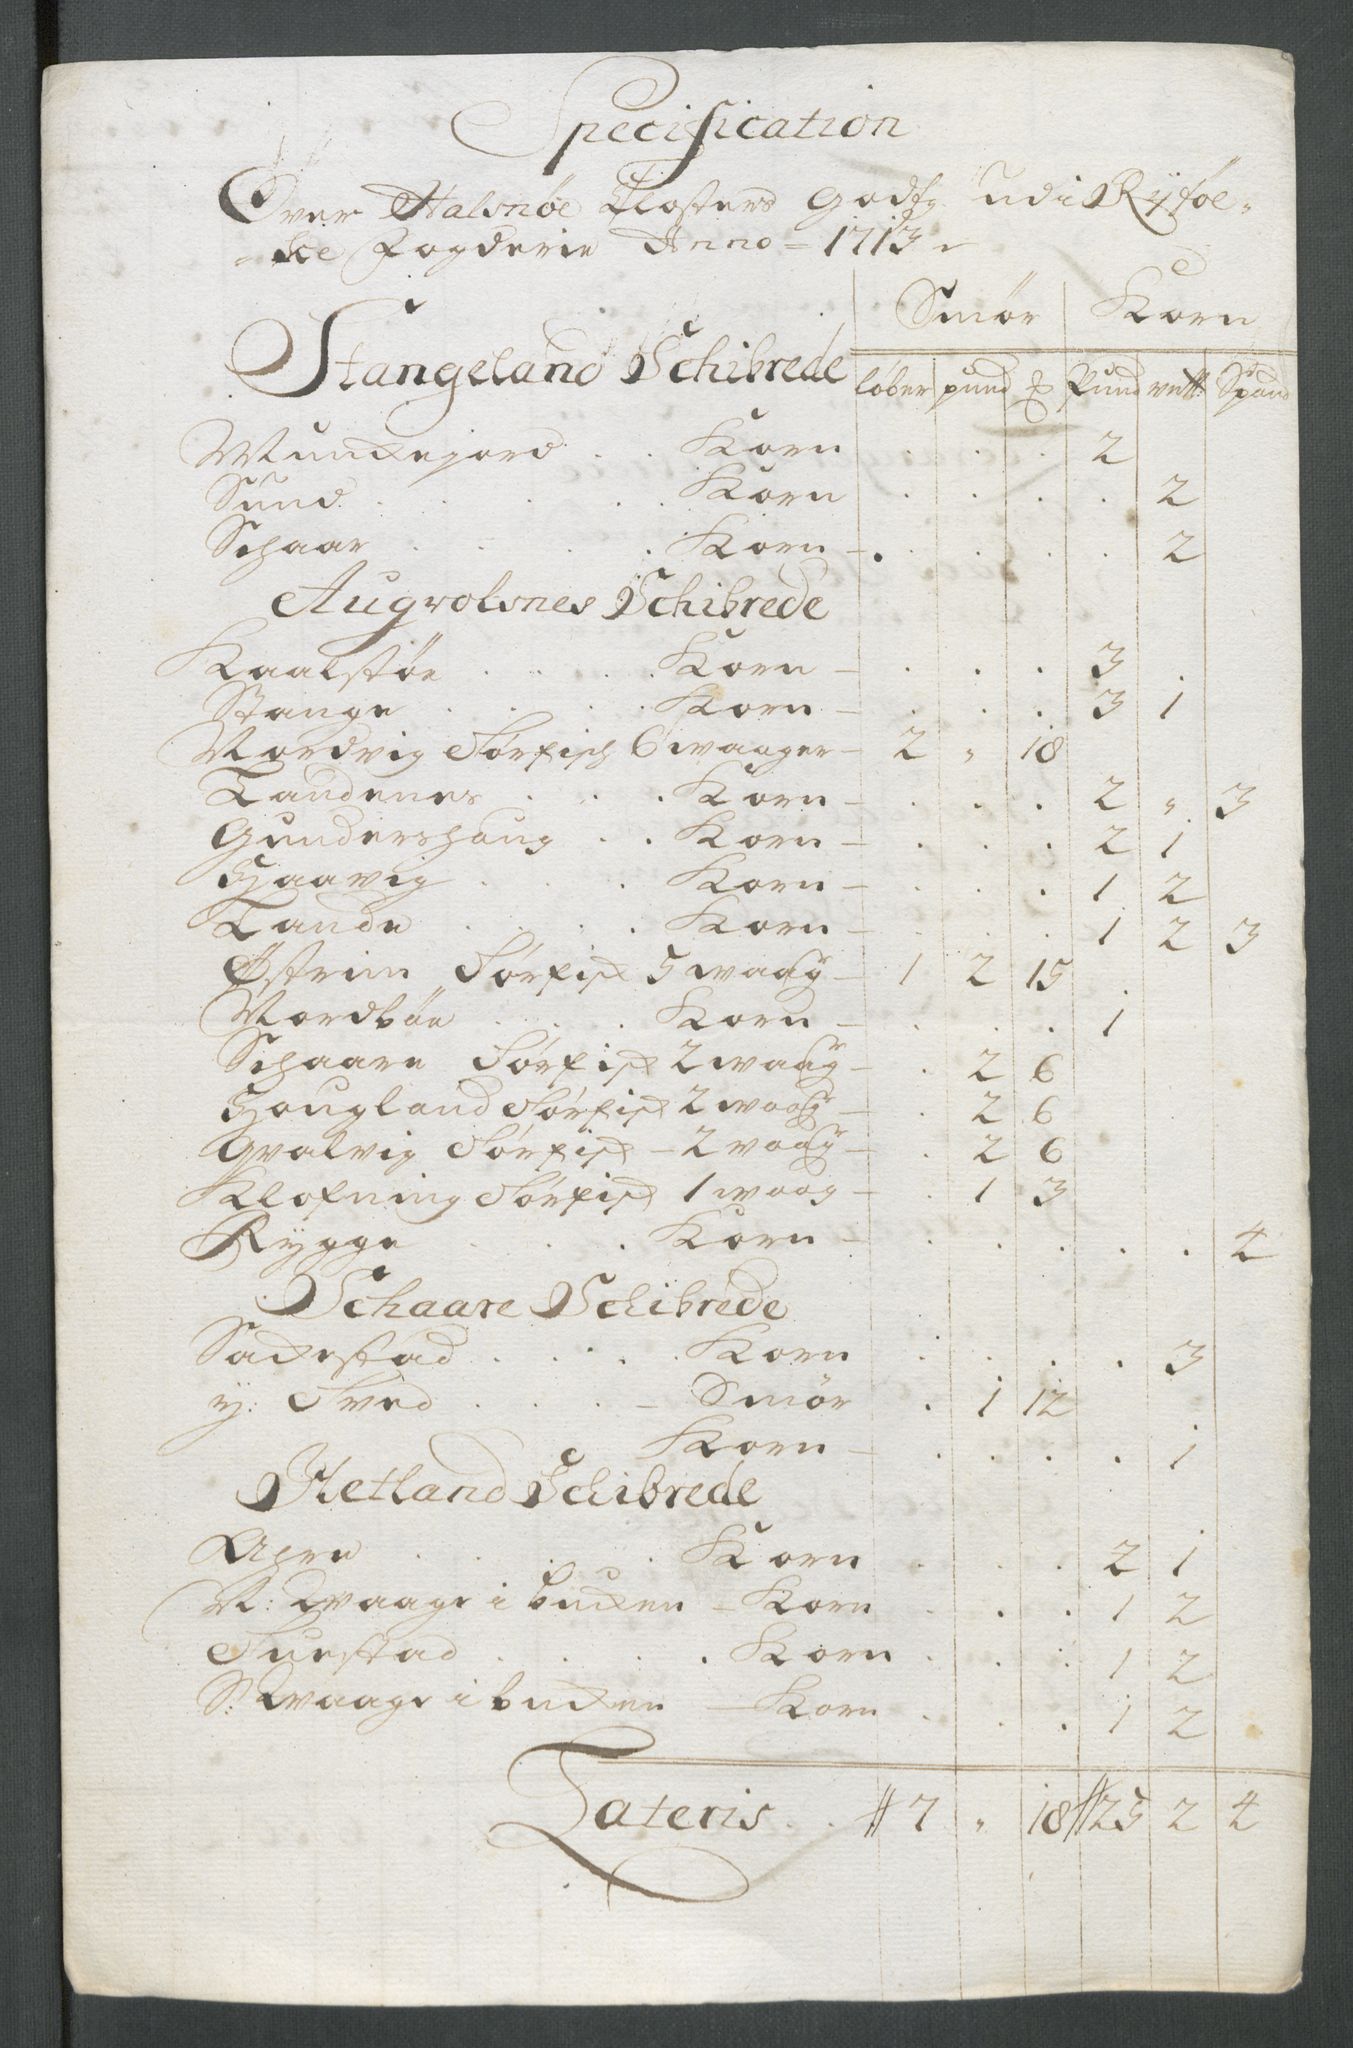 Specification
Over Halsnöe Closters Godtz udi Ryföl„
„ske Fogderie Anno = 1713 „
Smör Korn
Stangeland Schibrede löber pund ℔ Pund vett: Spand
Munckejord . . Korn . . . 2
Sund . . . . . Korn . . . . 2
Schaar . . . . . Korn – . . . . 2
Augvolsnes Schibrede
Kaalstöe . . . . . Korn – . . . 3 .
Stange . . . . Korn – . . . 3 1
Nordvig Törfisch 6 waager – 2 „ 18
Tandenes . . . . Korn – . . . 2 „ 3
Gundershaug . . Korn – . . . 2 1
Haavig . . . Korn – . . . 1 2
Lande . . . . Korn – . . . 1 2 3
Östrim Törfisk 5 waagr – 1 2 15
Nordböe . . . . Korn – . . . 1
Schaare Törfisk 2 waagr – . 2 6
Hougland Törfisk 2 waagr – . 2 6
Gvalvig Törfisk – 2 waagr – . 2 6
Klofning Törfisk 1 waag – . 1 3
Rygge . . . . Korn – . . . . . 4
Schaare Schibrede
Saxestad . . . . . Korn . . . . . 3
y: Tved . . . . – Smör . 1 12
Korn – . . . . 1
Hetland Schibrede
. . . Korn . . . 2 1
N: Qvaage i bucken – Korn . . . 1 2
Tuestad . . . . . Korn . . . 1 2
S: Qvaage i bucken – Korn . . . 1 2
Lateris . . # 7 „ 18 # 25 2 4